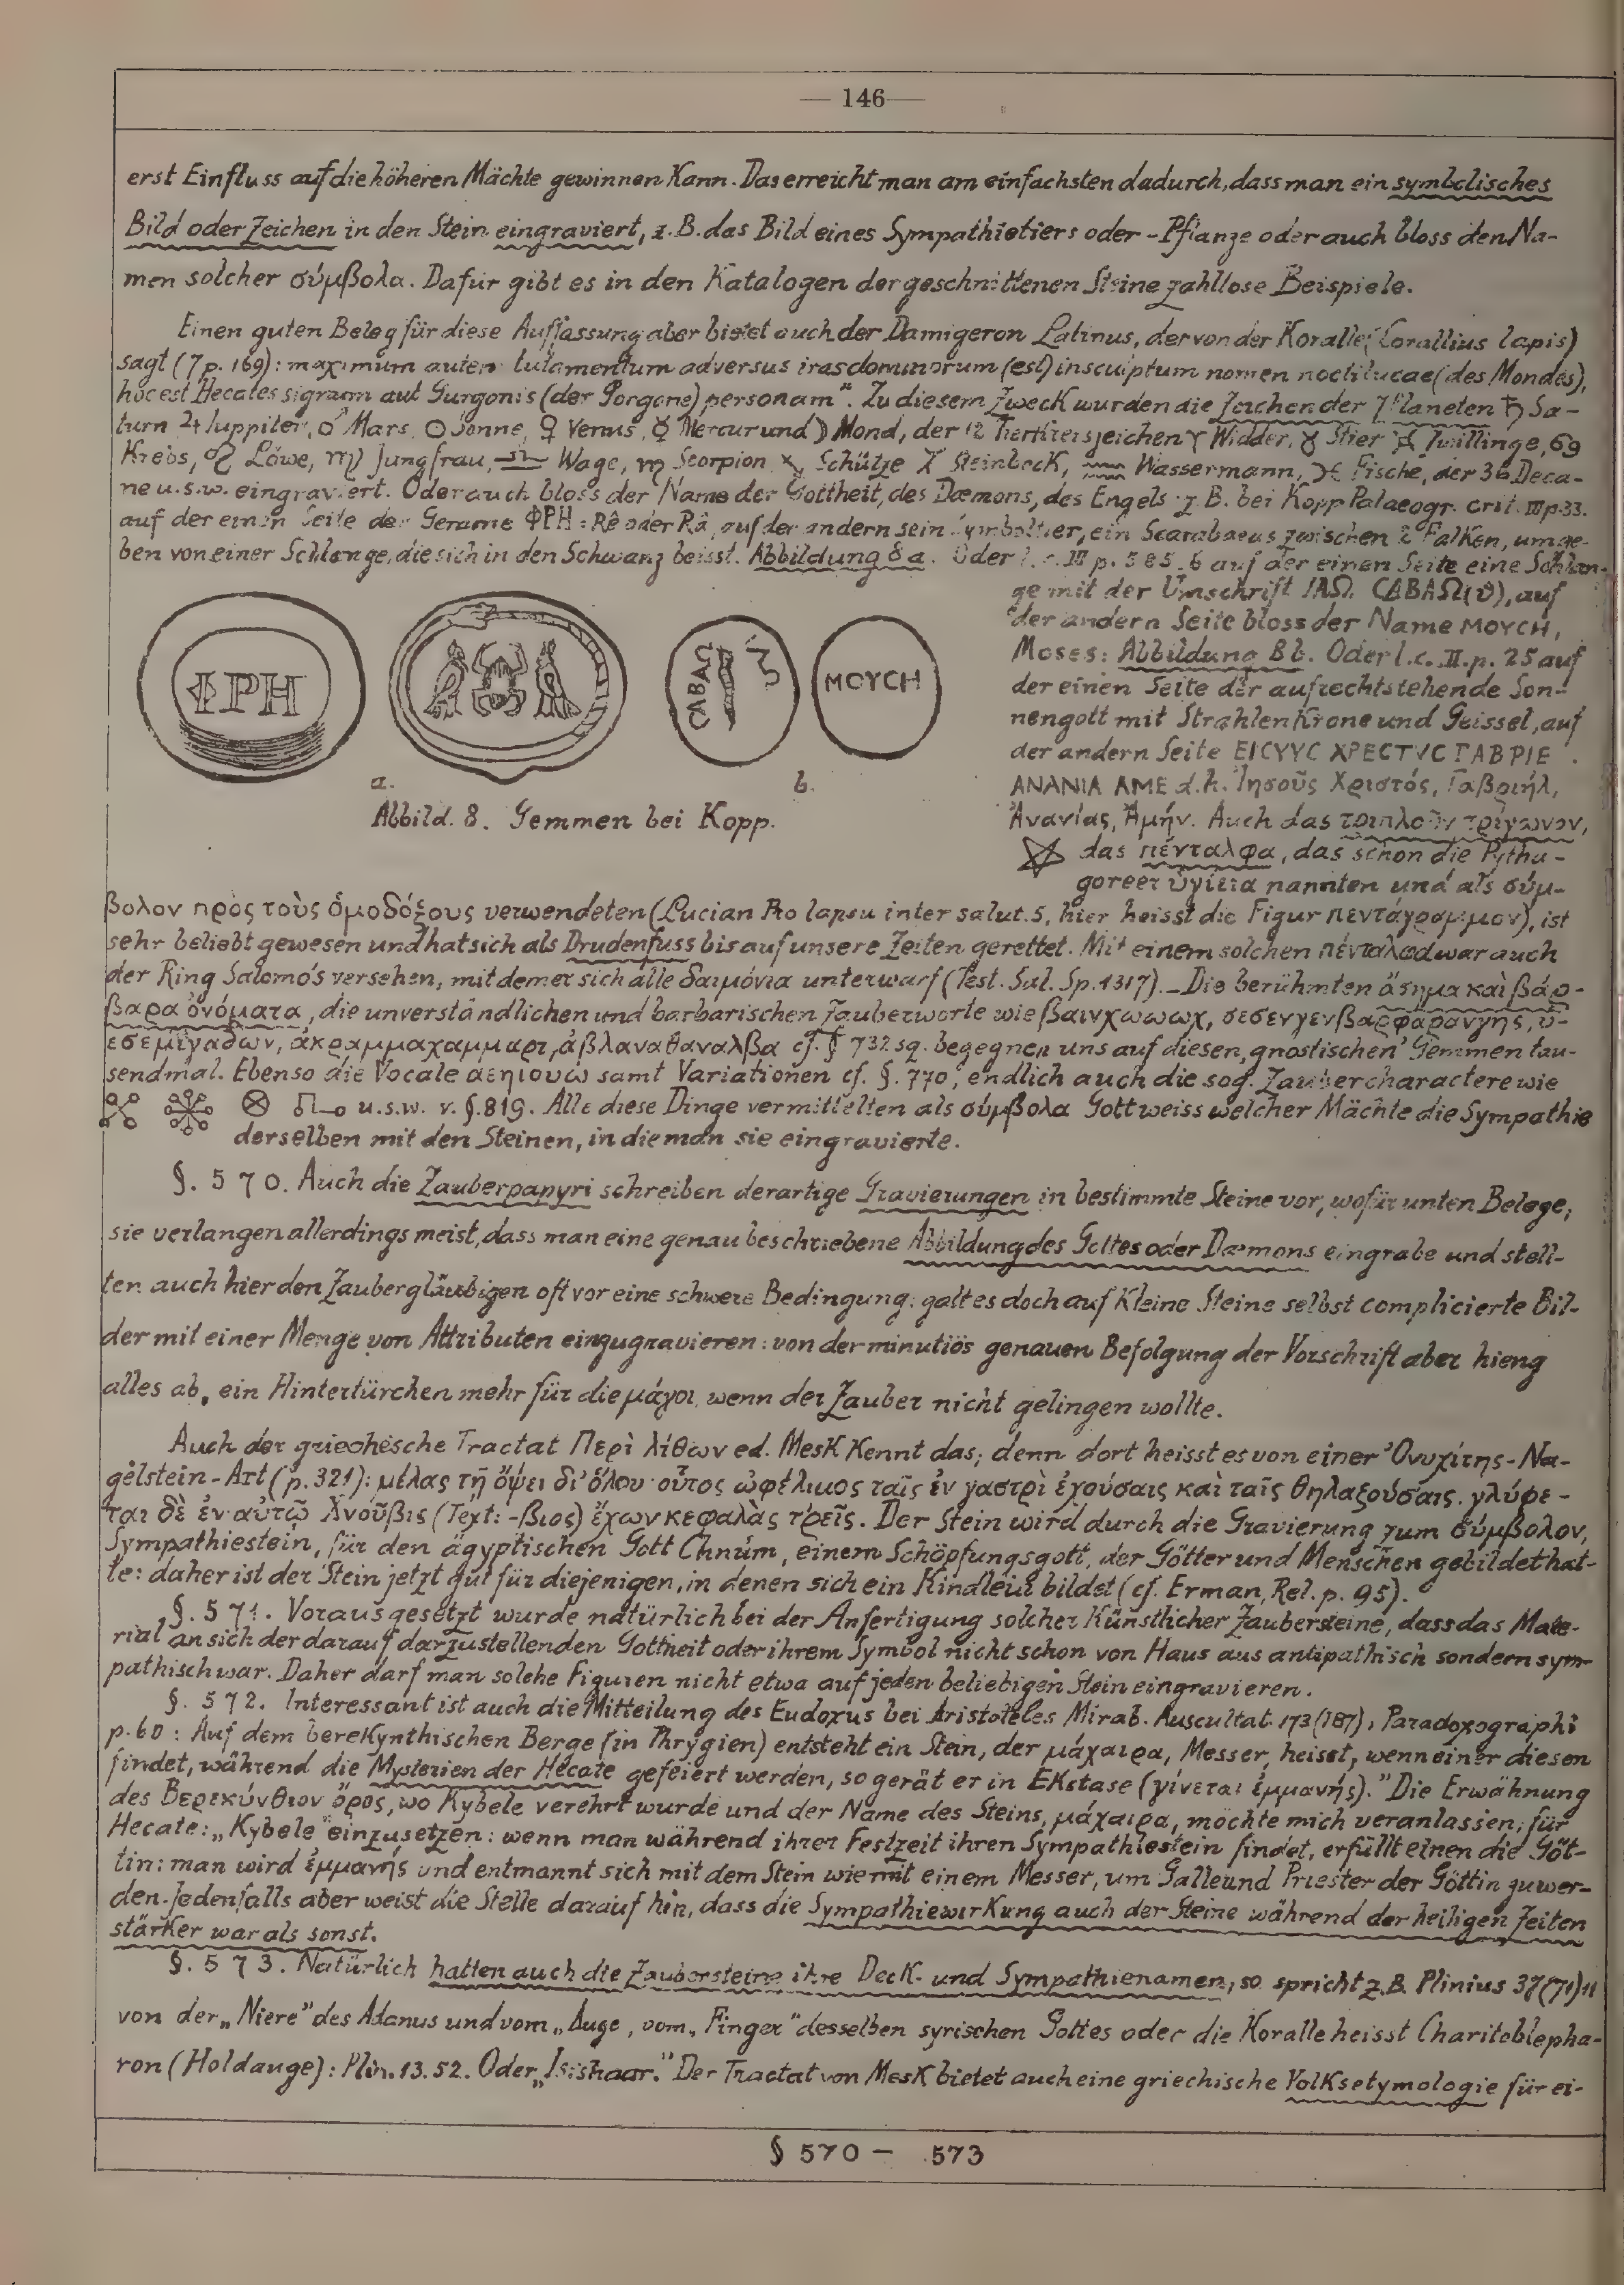 — 146 —
erst Einfluss auf die höheren Mächte gewinnen kann. Das erreicht man am einfachsten dadurch, dass man ein symbolisches
Bild oder Zeichen in den Stein eingraviert, z. B. das Bild eines Sympathietiers oder -Pflanze oder auch bloss den Na-
men solcher σύμβολα. Dafür gibt es in den Katalogen der geschnittenen Steine zahllose Beispiele.
Einen guten Beleg für diese Auffassung aber bietet auch der Damigeron Latinus, der von der Koralle (Corallius lapis)
sagt (7 p. 169): maximum autem tutamentum adversus iras dominorum (est) insculptum nomen noctilucae (des Mondes),
hoc est Hecates signum aut Gurgonis (der Gorgone) personam“. Zu diesem Zweck wurden die Zeichen der 7 Planeten ♄ Sa-
turn ♃ Iuppiter, ♂ Mars, ☉ Sonne, ♀ Venus, ☿ Mercur und ☽ Mond, der 12 Tierkreiszeichen ♈ Widder, ♉ Stier ♊ Zwillinge, ♋
Krebs, ♌ Löwe, ♍ Jungfrau, ♎ Wage, ♏ Scorpion ♐ Schütze ♑ Steinbock, ♒ Wassermann, ♓ Fische, der 36 Deca-
ne u.s.w. eingraviert. Oder auch bloss der Name der Gottheit, des Dæmons, des Engels z. B. bei Kopp Palaeogr. crit. III p. 33.
auf der einen Seite der Gemme ΦΡΗ = Rê oder Râ, auf der andern sein Symboltier, ein Scarabaeus zwischen 2 Falken, umge-
ben von einer Schlange, die sich in den Schwanz beisst. Abbildung 8 a. Oder l. c. III p. 585. b auf der einen Seite eine Schlan-
ge mit der Umschrift ΙΑΩ. CΑΒΑΩ(θ), auf
der andern Seite bloss der Name ΜΟΥCΗ,
Moses: Abbildung 8 b. Oder l. c. II. p. 25 auf
der einen Seite der aufrechtstehende Son-
nengott mit Strahlenkrone und Geissel, auf
der andern Seite ΕΙCΥΥC ΧΡΕCΤΥC ΓΑΒΡΙΕ
ΑΝΑΝΙΑ ΑΜΕ d. h. Ἰησοῦς Χριστός, Γαβριήλ,
Ἀνανίας, Ἀμήν. Auch das τριπλοῦν τρίγωνον,
das πένταλφα, das schon die Pytha-
goreer ὑγίεια nannten und als σύμ-
ΦΡΗ
CΑΒΑΩ
ΙΑΩ
ΜΟΥCΗ
a.
b.
Abbild. 8. Gemmen bei Kopp.
βολον πρὸς τοὺς ὁμοδόξους verwendeten (Lucian Pro lapsu inter salut. 5, hier heisst die Figur πεντάγραμμον), ist
sehr beliebt gewesen und hat sich als Drudenfuss bis auf unsere Zeiten gerettet. Mit einem solchen πένταλφα war auch
der Ring Salomo's versehen, mit dem er sich alle δαιμόνια unterwarf (Test. Sal. Sp. 1317). — Die berühmten ἄσημα καὶ βάρ-
βαρα ὀνόματα, die unverständlichen und barbarischen Zauberworte wie βαινχωωωχ, σεσενγενβαρφαρανγης, ὑ-
εσεμιγάδων, ἀκραμμαχαμμαρι, ἀβλαναθαναλβα cf. § 732 sq. begegnen uns auf diesen „gnostischen“ Gemmen tau-
sendmal. Ebenso die Vocale αεηιουω samt Variationen cf. §. 770, endlich auch die sog. Zaubercharactere wie
u.s.w. v. §. 819. Alle diese Dinge vermittelten als σύμβολα Gott weiss welcher Mächte die Sympathie
derselben mit den Steinen, in die man sie eingravierte.
§. 570. Auch die Zauberpapyri schreiben derartige Gravierungen in bestimmte Steine vor, wofür unten Belege;
sie verlangen allerdings meist, dass man eine genau beschriebene Abbildung des Gottes oder Dæmons eingrabe und stell-
ten auch hier den Zaubergläubigen oft vor eine schwere Bedingung: galt es doch auf kleine Steine selbst complicierte Bil-
der mit einer Menge von Attributen einzugravieren: von der minutiös genauen Befolgung der Vorschrift aber hieng
alles ab, ein Hintertürchen mehr für die μάγοι, wenn der Zauber nicht gelingen wollte.
Auch der griechische Tractat Περὶ λίθων ed. Mesk kennt das; denn dort heisst es von einer Ὀνυχίτης-Na-
gelstein-Art (p. 321): μέλας τῇ ὄψει δι' ὅλου· οὗτος ὠφέλιμος ταῖς ἐν γαστρὶ ἐχούσαις καὶ ταῖς θηλαζούσαις. γλύφε-
ται δὲ ἐν αὐτῷ Χνοῦβις (Text: -βιος) ἔχων κεφαλὰς τρεῖς. Der Stein wird durch die Gravierung zum σύμβολον,
Sympathiestein, für den ägyptischen Gott Chnúm, einem Schöpfungsgott, der Götter und Menschen gebildet hat-
te: daher ist der Stein jetzt gut für diejenigen, in denen sich ein Kindlein bildet (cf. Erman, Rel. p. 95).
§. 571. Vorausgesetzt wurde natürlich bei der Anfertigung solcher künstlicher Zaubersteine, dass das Mate-
rial an sich der darauf darzustellenden Gottheit oder ihrem Symbol nicht schon von Haus aus antipathisch sondern sym-
pathisch war. Daher darf man solche Figuren nicht etwa auf jeden beliebigen Stein eingravieren.
§. 572. Interessant ist auch die Mitteilung des Eudoxus bei Aristoteles Mirab. Auscultat. 173 (187), Paradoxographi
p. 60: Auf dem berekynthischen Berge (in Phrygien) entsteht ein Stein, der μάχαιρα, Messer, heisst, wenn einer diesen
findet, während die Mysterien der Hecate gefeiert werden, so gerät er in Ekstase (γίνεται ἐμμανής).“ Die Erwähnung
des Βερεκύνθιον ὄρος, wo Kybele verehrt wurde und der Name des Steins, μάχαιρα, möchte mich veranlassen, für
Hecate: „Kybele“ einzusetzen: wenn man während ihrer Festzeit ihren Sympathiestein findet, erfüllt einen die Göt-
tin: man wird ἐμμανής und entmannt sich mit dem Stein wie mit einem Messer, um Galle und Priester der Göttin zu wer-
den. Jedenfalls aber weist die Stelle darauf hin, dass die Sympathiewirkung auch der Steine während der heiligen Zeiten
stärker war als sonst.
§. 573. Natürlich hatten auch die Zaubersteine ihre Deck- und Sympathienamen, so spricht z. B. Plinius 37 (71) 11
von der „Niere“ des Adanus und vom „Auge, vom „Finger“ desselben syrischen Gottes oder die Koralle heisst Charitoblepha-
ron (Holdauge): Plin. 13. 52. Oder „Isishaar.“ Der Tractat von Mesk bietet auch eine griechische Volksetymologie für ei-
§ 570 – 573